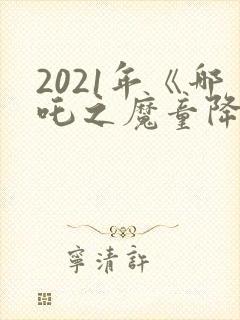 2021年《哪
吒之魔童降
寧清許